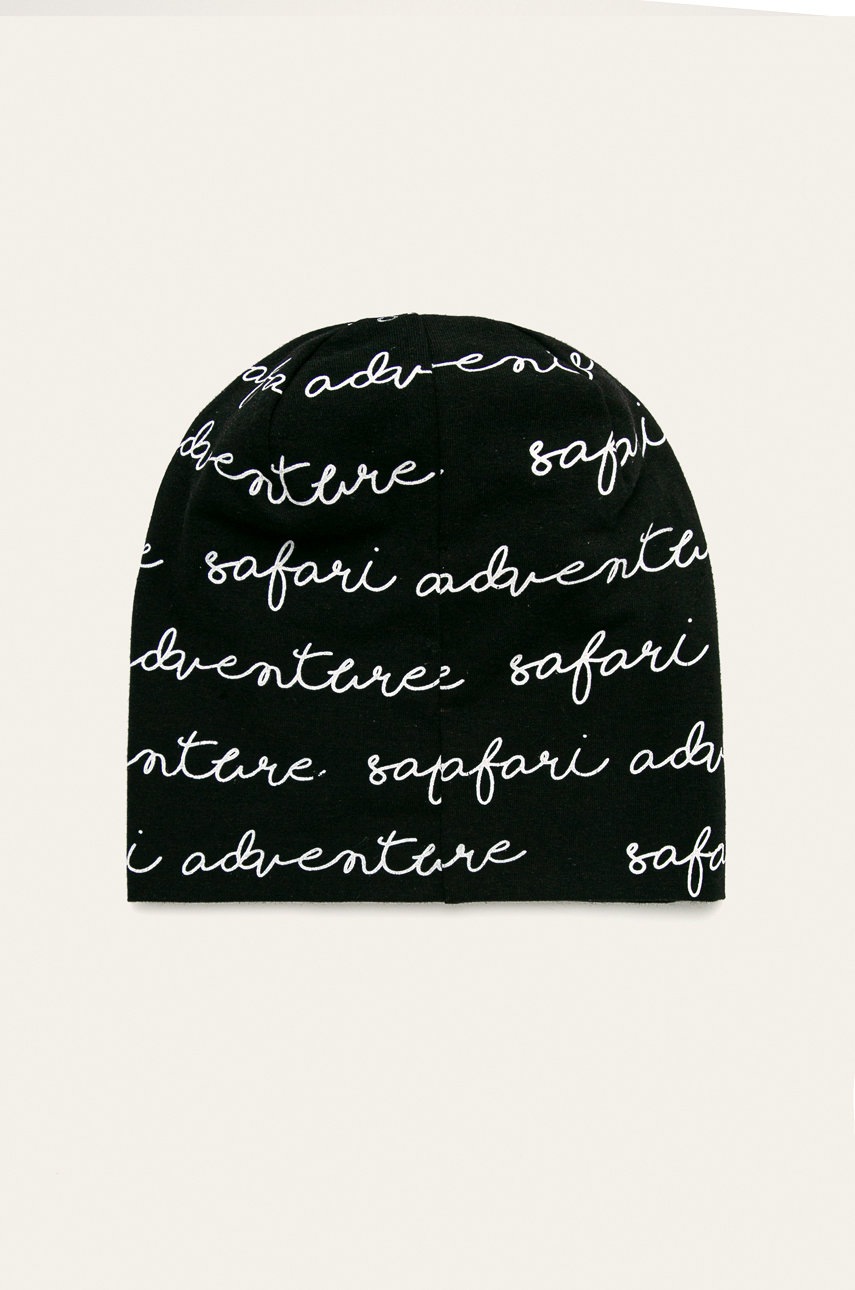 adven
dventure safari
e safari adventu
dventure safari
nture safari adv
i adventure safa